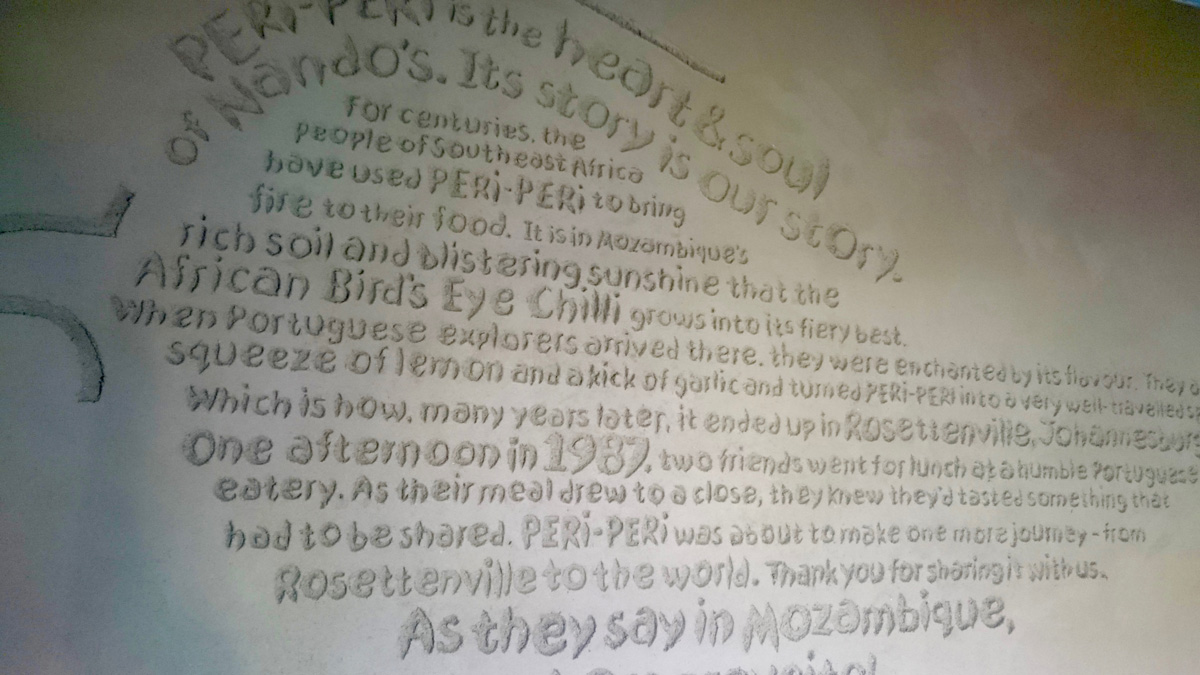 PERi-PERi is the heart & soul
of Nando's. Its story is our story.
For centuries, the
people of Southeast Africa
have used PERi-PERi to bring
fire to their food. It is in Mozambique's
rich soil and blistering sunshine that the
African Bird's Eye Chilli grows into its fiery best.
When Portuguese explorers arrived there, they were enchanted by its flavour. They
squeeze of lemon and a kick of garlic and turned PERi-PERi into a very well-travelled
Which is how, many years later, it ended up in Rosettenville, Johannesburg
One afternoon in 1987, two friends went for lunch at a humble Portuguese
eatery. As their meal drew to a close, they knew they'd tasted something that
had to be shared. PERi-PERi was about to make one more journey - from
Rosettenville to the world. Thank you for sharing it with us.
As they say in Mozambique,